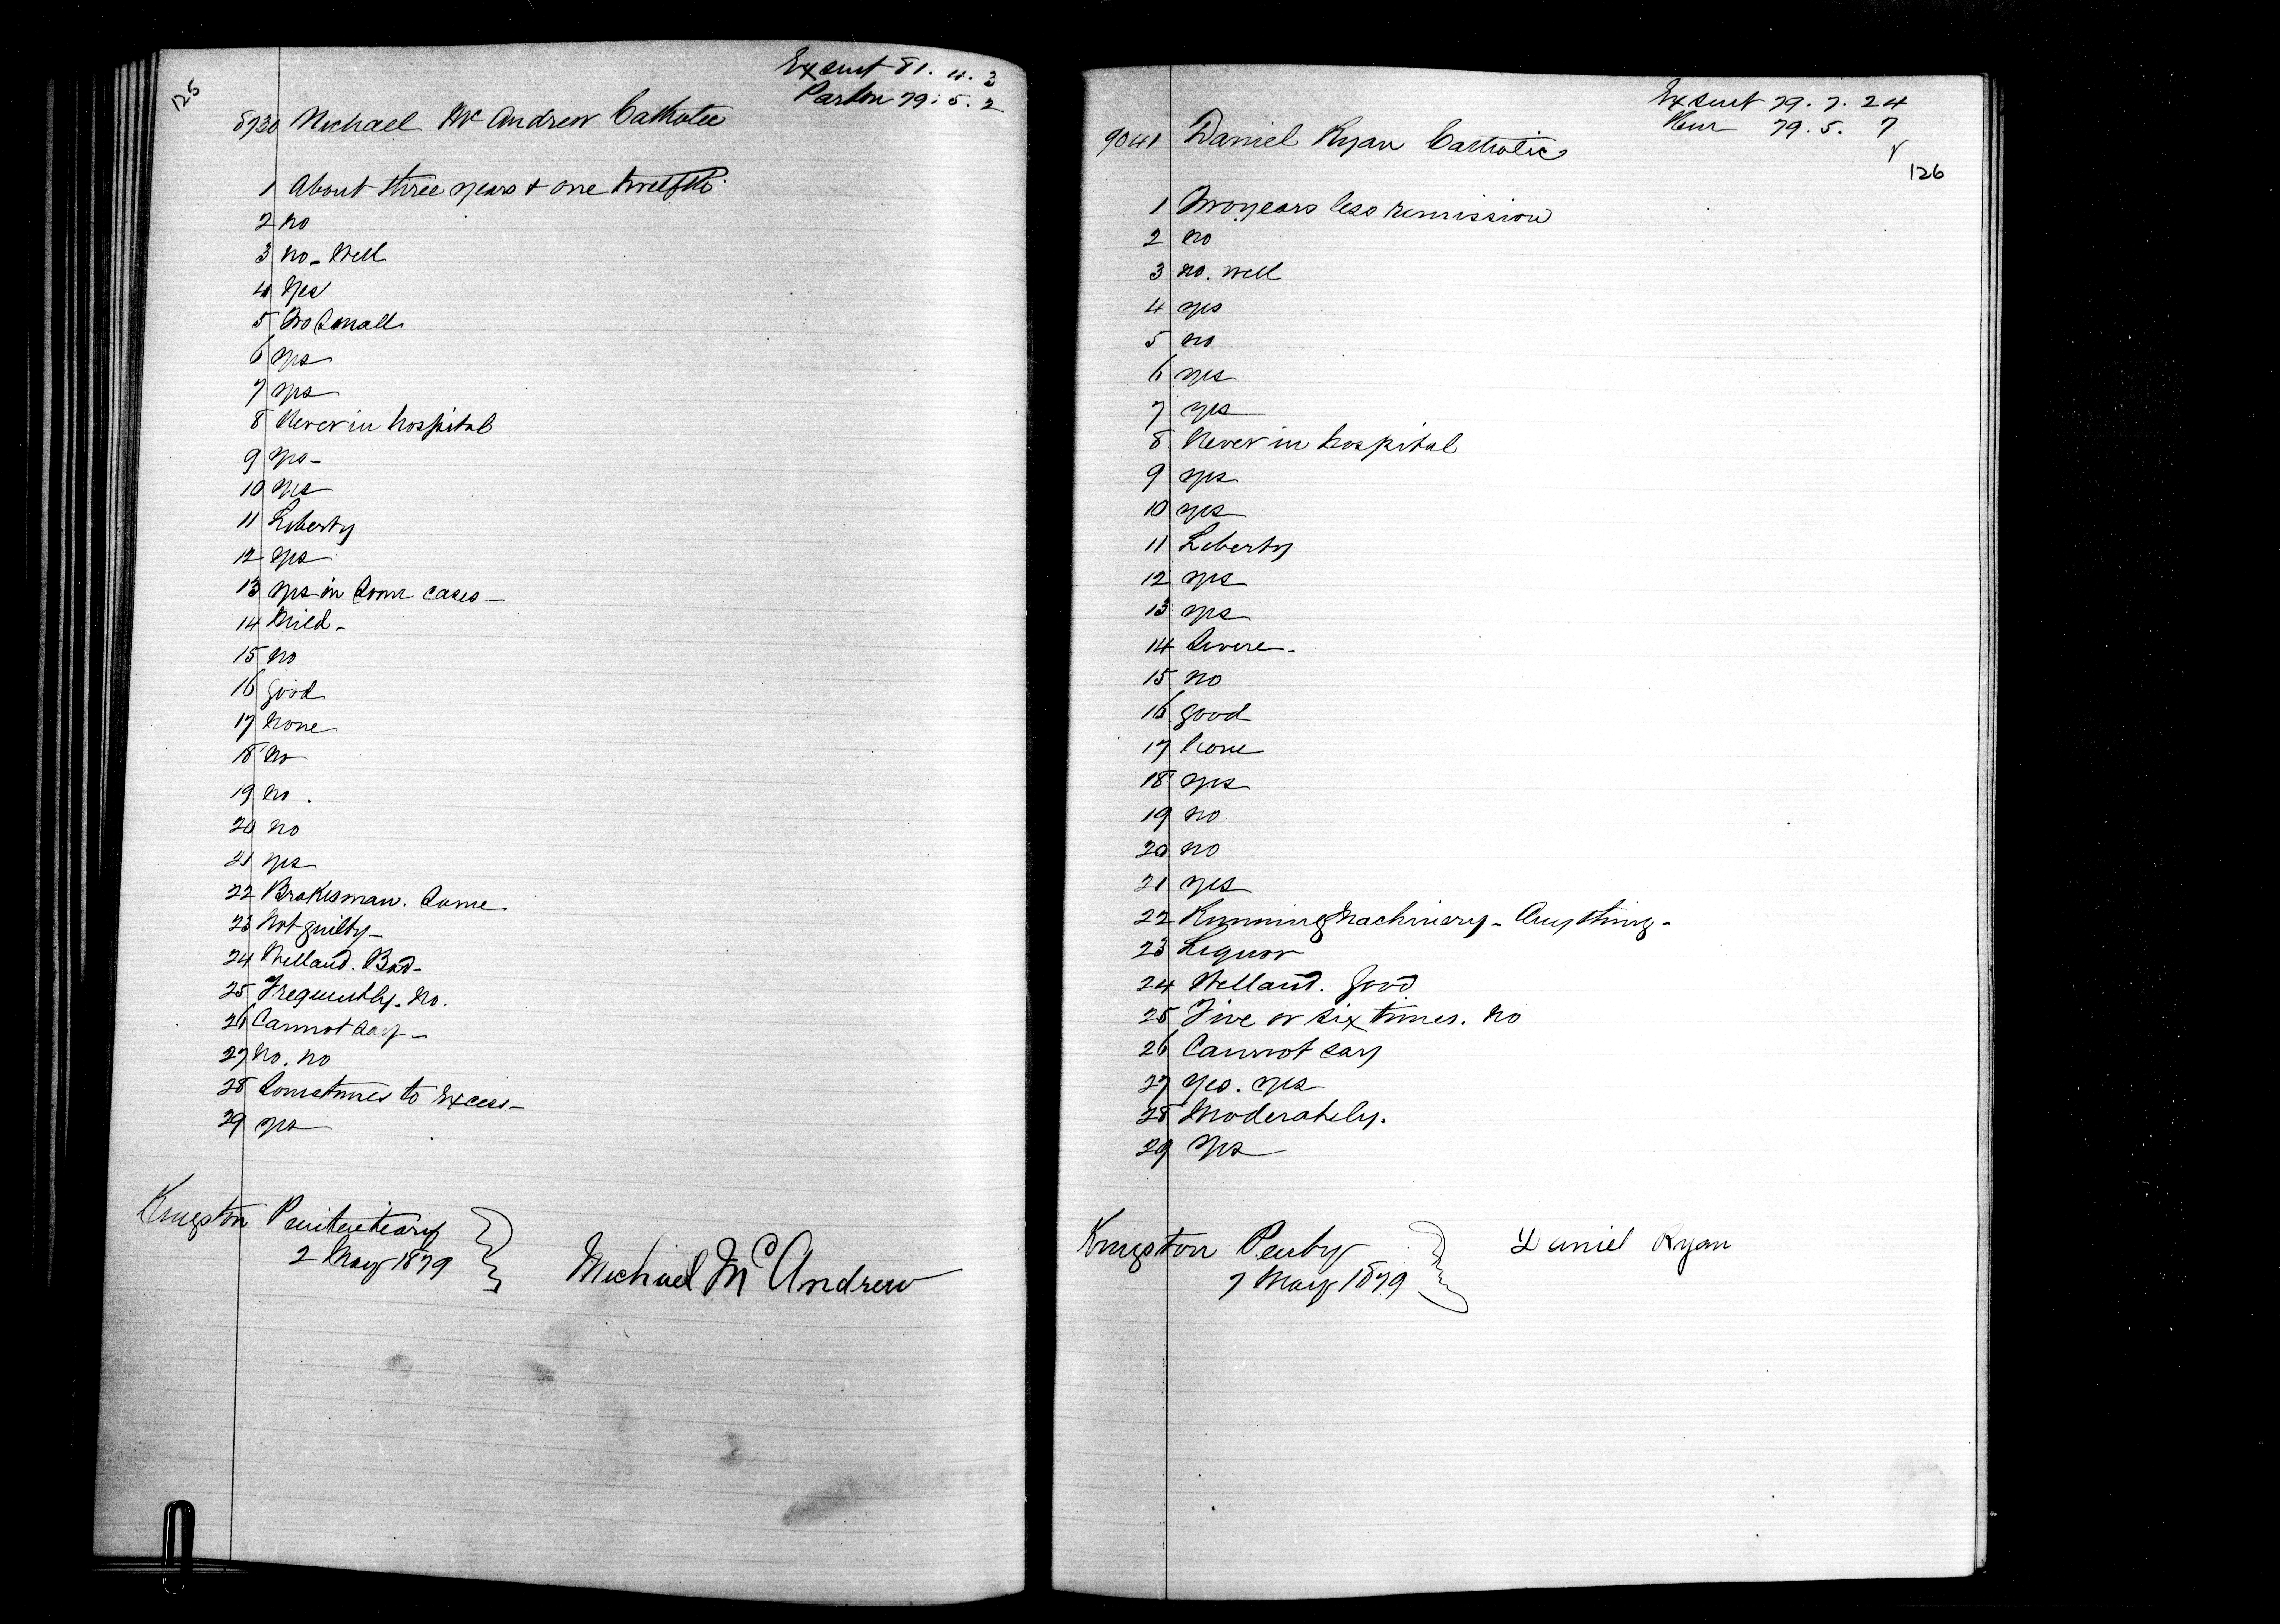 125
Ex sent 81. 4. 3
Pardon 79. 5. 2
8730 Michael McAndrew Catholic
1 About three years & one twelfth
2 no
3 no - Well
4 Yes
5 Too small
6 yes
7 yes
8 Never in hospital
9 yes -
10 yes
11 Liberty
12 yes
13 yes in some cases -
14 Mild -
15 no
16 good
17 None
18 No
19 no .
20 no
21 yes
22 Brakesman. Same
23 Not guilty -
24 Welland. Bad -
25 Frequently. No.
26 Cannot say -
27 no. no
28 Sometimes to excess -
29 yes
Kingston Penitentiary
2 May 1879
Michael McAndrew
Ex sent 79. 7. 24
79. 5. 7
126
9041 Daniel Ryan Catholic
1 Two years less remission
2 no
3 no. well
4 yes
5 no
6 yes
7 yes
8 Never in hospital
9 yes
10 yes
11 Liberty
12 yes
13 yes
14 Severe -
15 no
16 good
17 None
18 yes
19 no
20 no
21 yes
22 Running Machinery - Anything -
23 Liquor
24 Welland. Good
25 Five or six times. no
26 Cannot say
27 Yes. yes
28 Moderately.
29 Yes
Kingston Penty
7 May 1879
Daniel Ryan